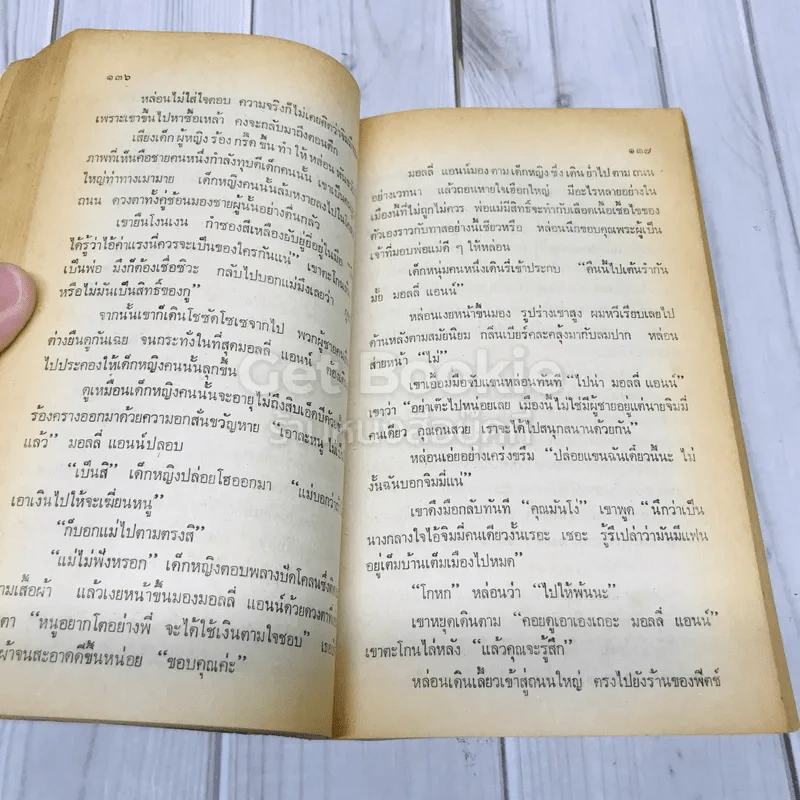 ๑๓๖
หล่อนไม่ใส่ใจตอบ ความจริงก็ไม่เคยคิดว่าจิมมี่
เพราะเขาขึ้นไปหาซื้อเหล้า คงจะกลับมาถึงตอนดึก
เสียงเด็กผู้หญิงร้องกรี๊ดขึ้น ทำให้หล่อน
ภาพที่เห็นคือชายคนหนึ่งกำลังทุบตีเด็กคนนั้น เขาเป็น
ใหญ่ท่าทางเมามาย เด็กหญิงคนนั้นล้มหงายลงไปใน
ถนน ดวงตาทั้งคู่ช้อนมองชายผู้นั้นอย่างตื่นกลัว
เขายืนโงนเงน กำซองสีเหลืองยับยู่ยี่อยู่ในมือ
ได้รู้ว่าไอ้ค่าแรงนี่ควรจะเป็นของใครกันแน่” เขาตะโกน
เป็นพ่อ มึงก็ต้องเชื่อซิวะ กลับไปบอกแม่มึงเลยว่า
หรือไม่มันเป็นสิทธิ์ของกู”
จากนั้นเขาก็เดินโซซัดโซเซจากไป พวกผู้ชาย
ต่างยืนดูกันเฉย จนกระทั่งในที่สุดมอลลี่ แอนน์
ไปประคองให้เด็กหญิงคนนั้นลุกขึ้น
ดูเหมือนเด็กหญิงคนนั้นจะอายุไม่ถึงสิบเอ็ดปี
ร้องครางออกมาด้วยความอกสั่นขวัญหาย “เอาละหนู
แล้ว” มอลลี่ แอนน์ปลอบ
“เป็นสิ” เด็กหญิงปล่อยโฮออกมา “แม่บอกว่า
เอาเงินไปให้จะเฆี่ยนหนู”
“ก็บอกแม่ไปตามตรงสิ”
“แม่ไม่ฟังหรอก” เด็กหญิงตอบพลางปัดโคลนซึ่ง
ตามเสื้อผ้า แล้วเงยหน้าขึ้นมองมอลลี่ แอนน์ด้วยดวงตา
“หนูอยากโตอย่างพี่ จะได้ใช้เงินตามใจชอบ”
จนสะอาดดีขึ้นหน่อย “ขอบคุณค่ะ”
๑๓๗
มอลลี่ แอนน์มองตามเด็กหญิงซึ่งเดินย่ำไปตามถนน
อย่างเวทนา แล้วถอนหายใจเฮือกใหญ่ มีอะไรหลายอย่างใน
เมืองนี้ที่ไม่ถูกไม่ควร พ่อแม่มีสิทธิ์จะทำกับเลือดเนื้อเชื้อไขของ
ตัวเองราวกับทาสอย่างนี้เชียวหรือ หล่อนนึกขอบคุณพระผู้เป็น
เจ้าที่มอบพ่อแม่ดี ๆ ให้หล่อน
เด็กหนุ่มคนหนึ่งเดินรี่เข้าประกบ “คืนนี้ไปเต้นรำกัน
มั้ย มอลลี่ แอนน์”
หล่อนเงยหน้าขึ้นมอง รูปร่างเขาสูง ผมหวีเรียบเลยไป
ด้านหลังตามสมัยนิยม กลิ่นเบียร์คละคลุ้งมากับลมปาก หล่อน
สายหน้า “ไม่”
เขาเอื้อมมือจับแขนหล่อนทันที “ไปน่า มอลลี่ แอนน์”
เขาว่า “อย่าเต๊ะไปหน่อยเลย เมืองนี้ไม่ใช่มีผู้ชายอยู่แต่นายจิมมี่
คนเดียว คุณคนสวย เราจะได้ไปสนุกสนานด้วยกัน”
หล่อนเอ่ยอย่างเคร่งขรึม “ปล่อยแขนฉันเดี๋ยวนี้นะ ไม่
งั้นฉันบอกจิมมี่แน่”
เขาดึงมือกลับทันที “คุณมันโง่” เขาพูด “นึกว่าเป็น
นางกลางใจไอ้จิมมี่คนเดียวงั้นเรอะ เชอะ รู้รึเปล่าว่ามันมีแฟน
อยู่เต็มบ้านเต็มเมืองไปหมด”
“โกหก” หล่อนว่า “ไปให้พ้นนะ”
เขาหยุดเดินตาม “คอยดูเอาเองเถอะ มอลลี่ แอนน์”
เขาตะโกนไล่หลัง “แล้วคุณจะรู้สึก”
หล่อนเดินเลี้ยวเข้าสู่ถนนใหญ่ ตรงไปยังร้านของฟิตช์
Get Bookie